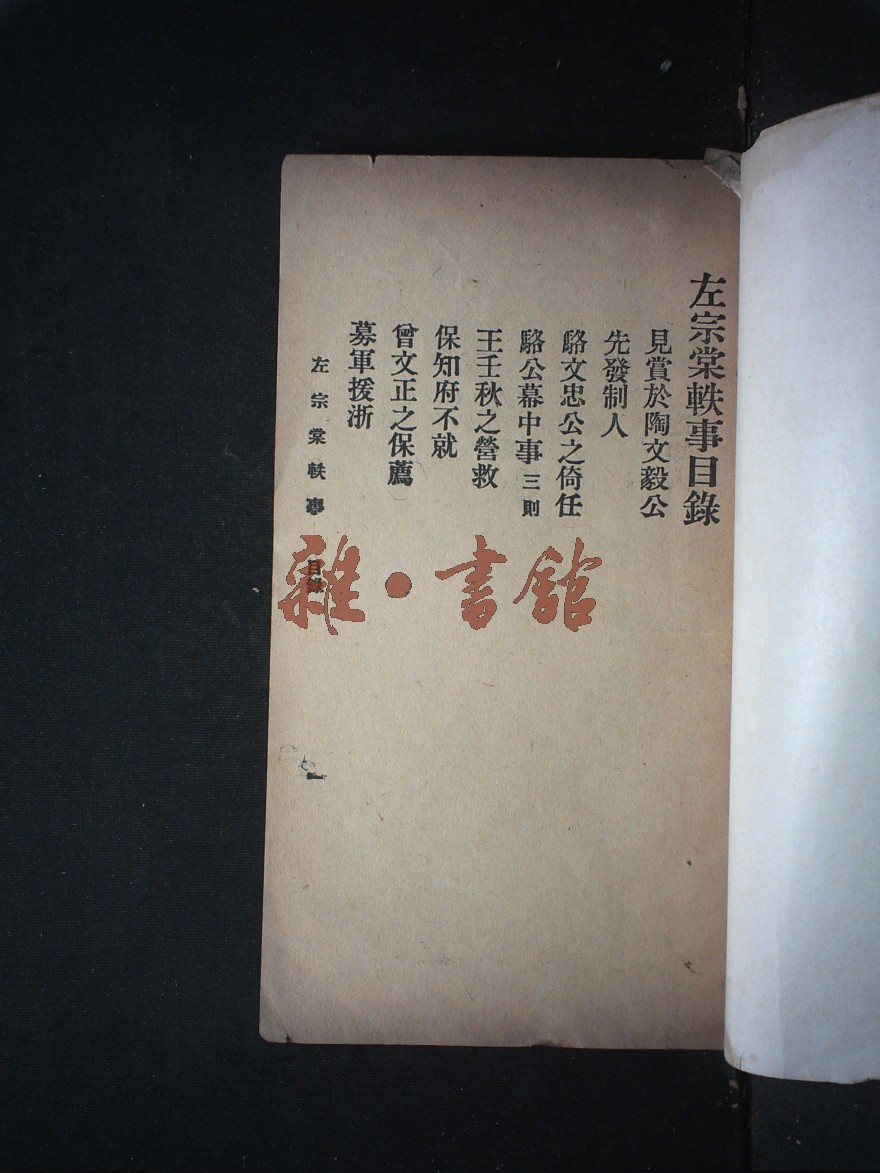 左宗棠軼事目錄
見賞於陶文毅公
先發制人
駱文忠公之倚任
駱公幕中事三則
王壬秋之營救
保知府不就
曾文正之保薦
募軍援浙
左宗棠軼事 目錄
雜·書館